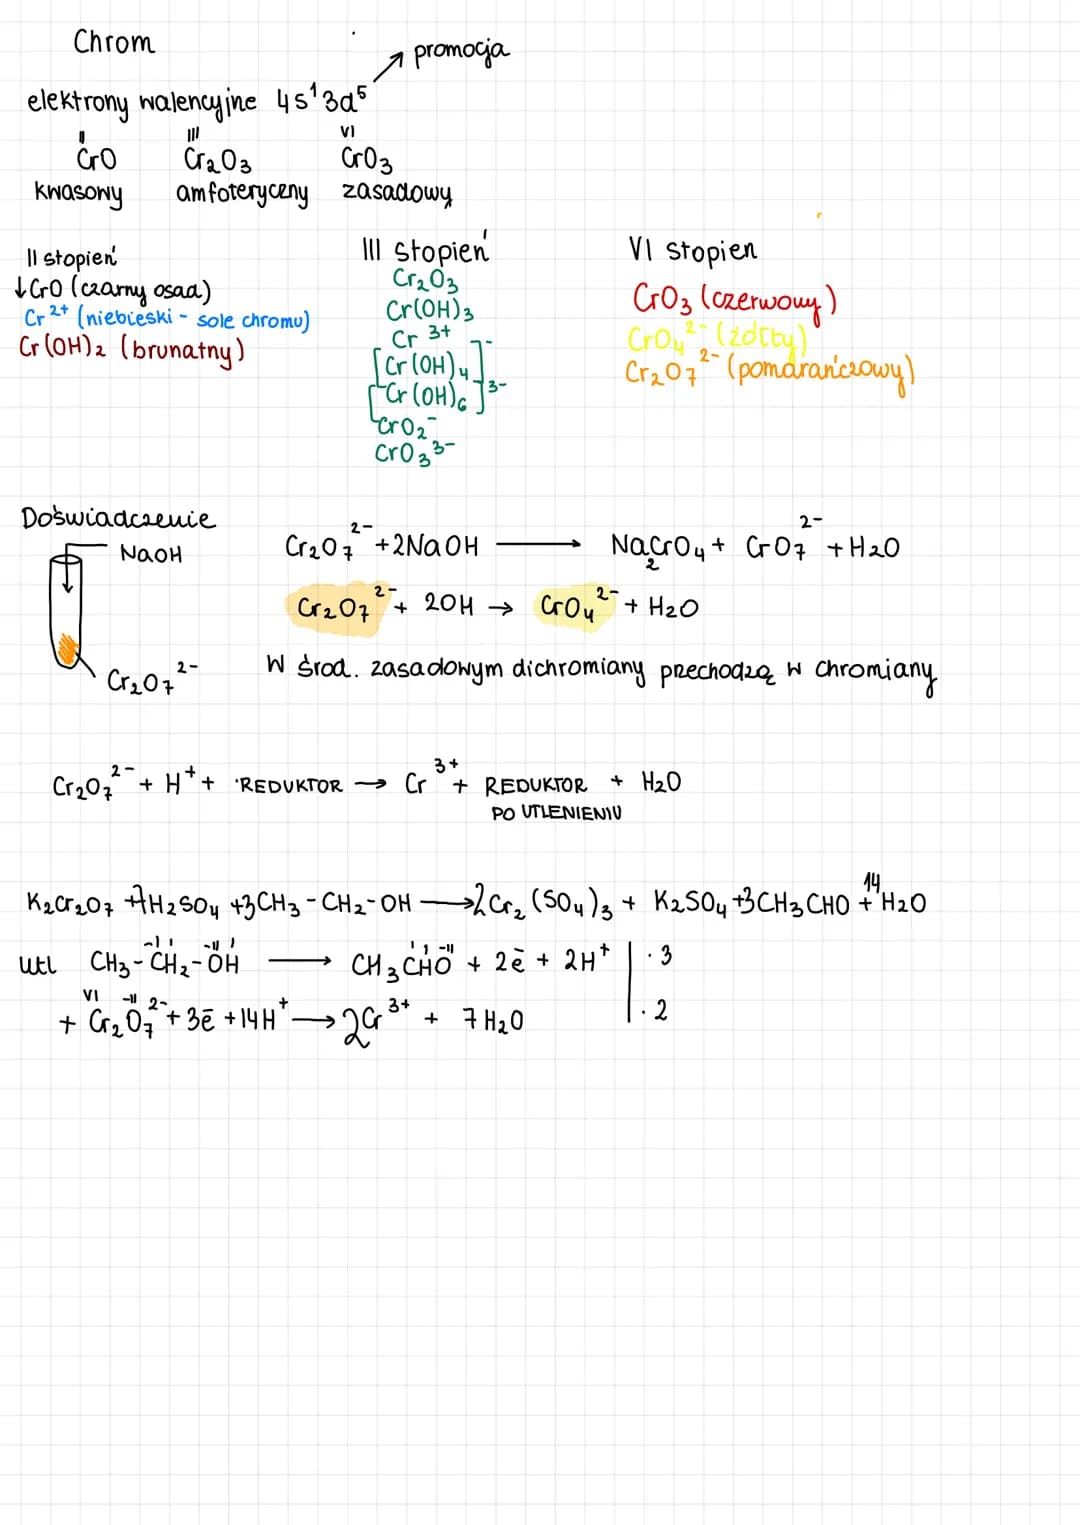 Chrom
promocja
elektrony walencyjne 4s¹3d⁵
II III VI
CrO Cr₂O₃ CrO₃
kwasowy amfoteryczny zasadowy
II stopień
↓CrO (czarny osad)
Cr²⁺ (niebieski - sole chromu)
Cr(OH)₂ (brunatny)
III stopień
Cr₂O₃
Cr(OH)₃
Cr³⁺
[Cr(OH)₄]⁻
[Cr(OH)₆]³⁻
CrO₂⁻
CrO₃³⁻
VI stopien
CrO₃ (czerwony)
CrO₄²⁻ (żółty)
Cr₂O₇²⁻ (pomarańczowy)
Doświadczenie
NaOH
Cr₂O₇²⁻
Cr₂O₇²⁻ + 2NaOH → Na₂CrO₄ + CrO₇²⁻ + H₂O
Cr₂O₇²⁻ + 2OH → CrO₄²⁻ + H₂O
W środ. zasadowym dichromiany przechodzą w chromiany
Cr₂O₇²⁻ + H⁺ + REDUKTOR → Cr³⁺ + REDUKTOR + H₂O
PO UTLENIENIU
K₂Cr₂O₇ + 7H₂SO₄ + 3CH₃-CH₂-OH → 2Cr₂(SO₄)₃ + K₂SO₄ + 3CH₃CHO + 14H₂O
-I I -II I I I -II
utl CH₃-CH₂-OH → CH₃CHO + 2ē + 2H⁺ | · 3
VI -II
+ Cr₂O₇²⁻ + 3ē + 14H⁺ → 2Cr³⁺ + 7H₂O | · 2